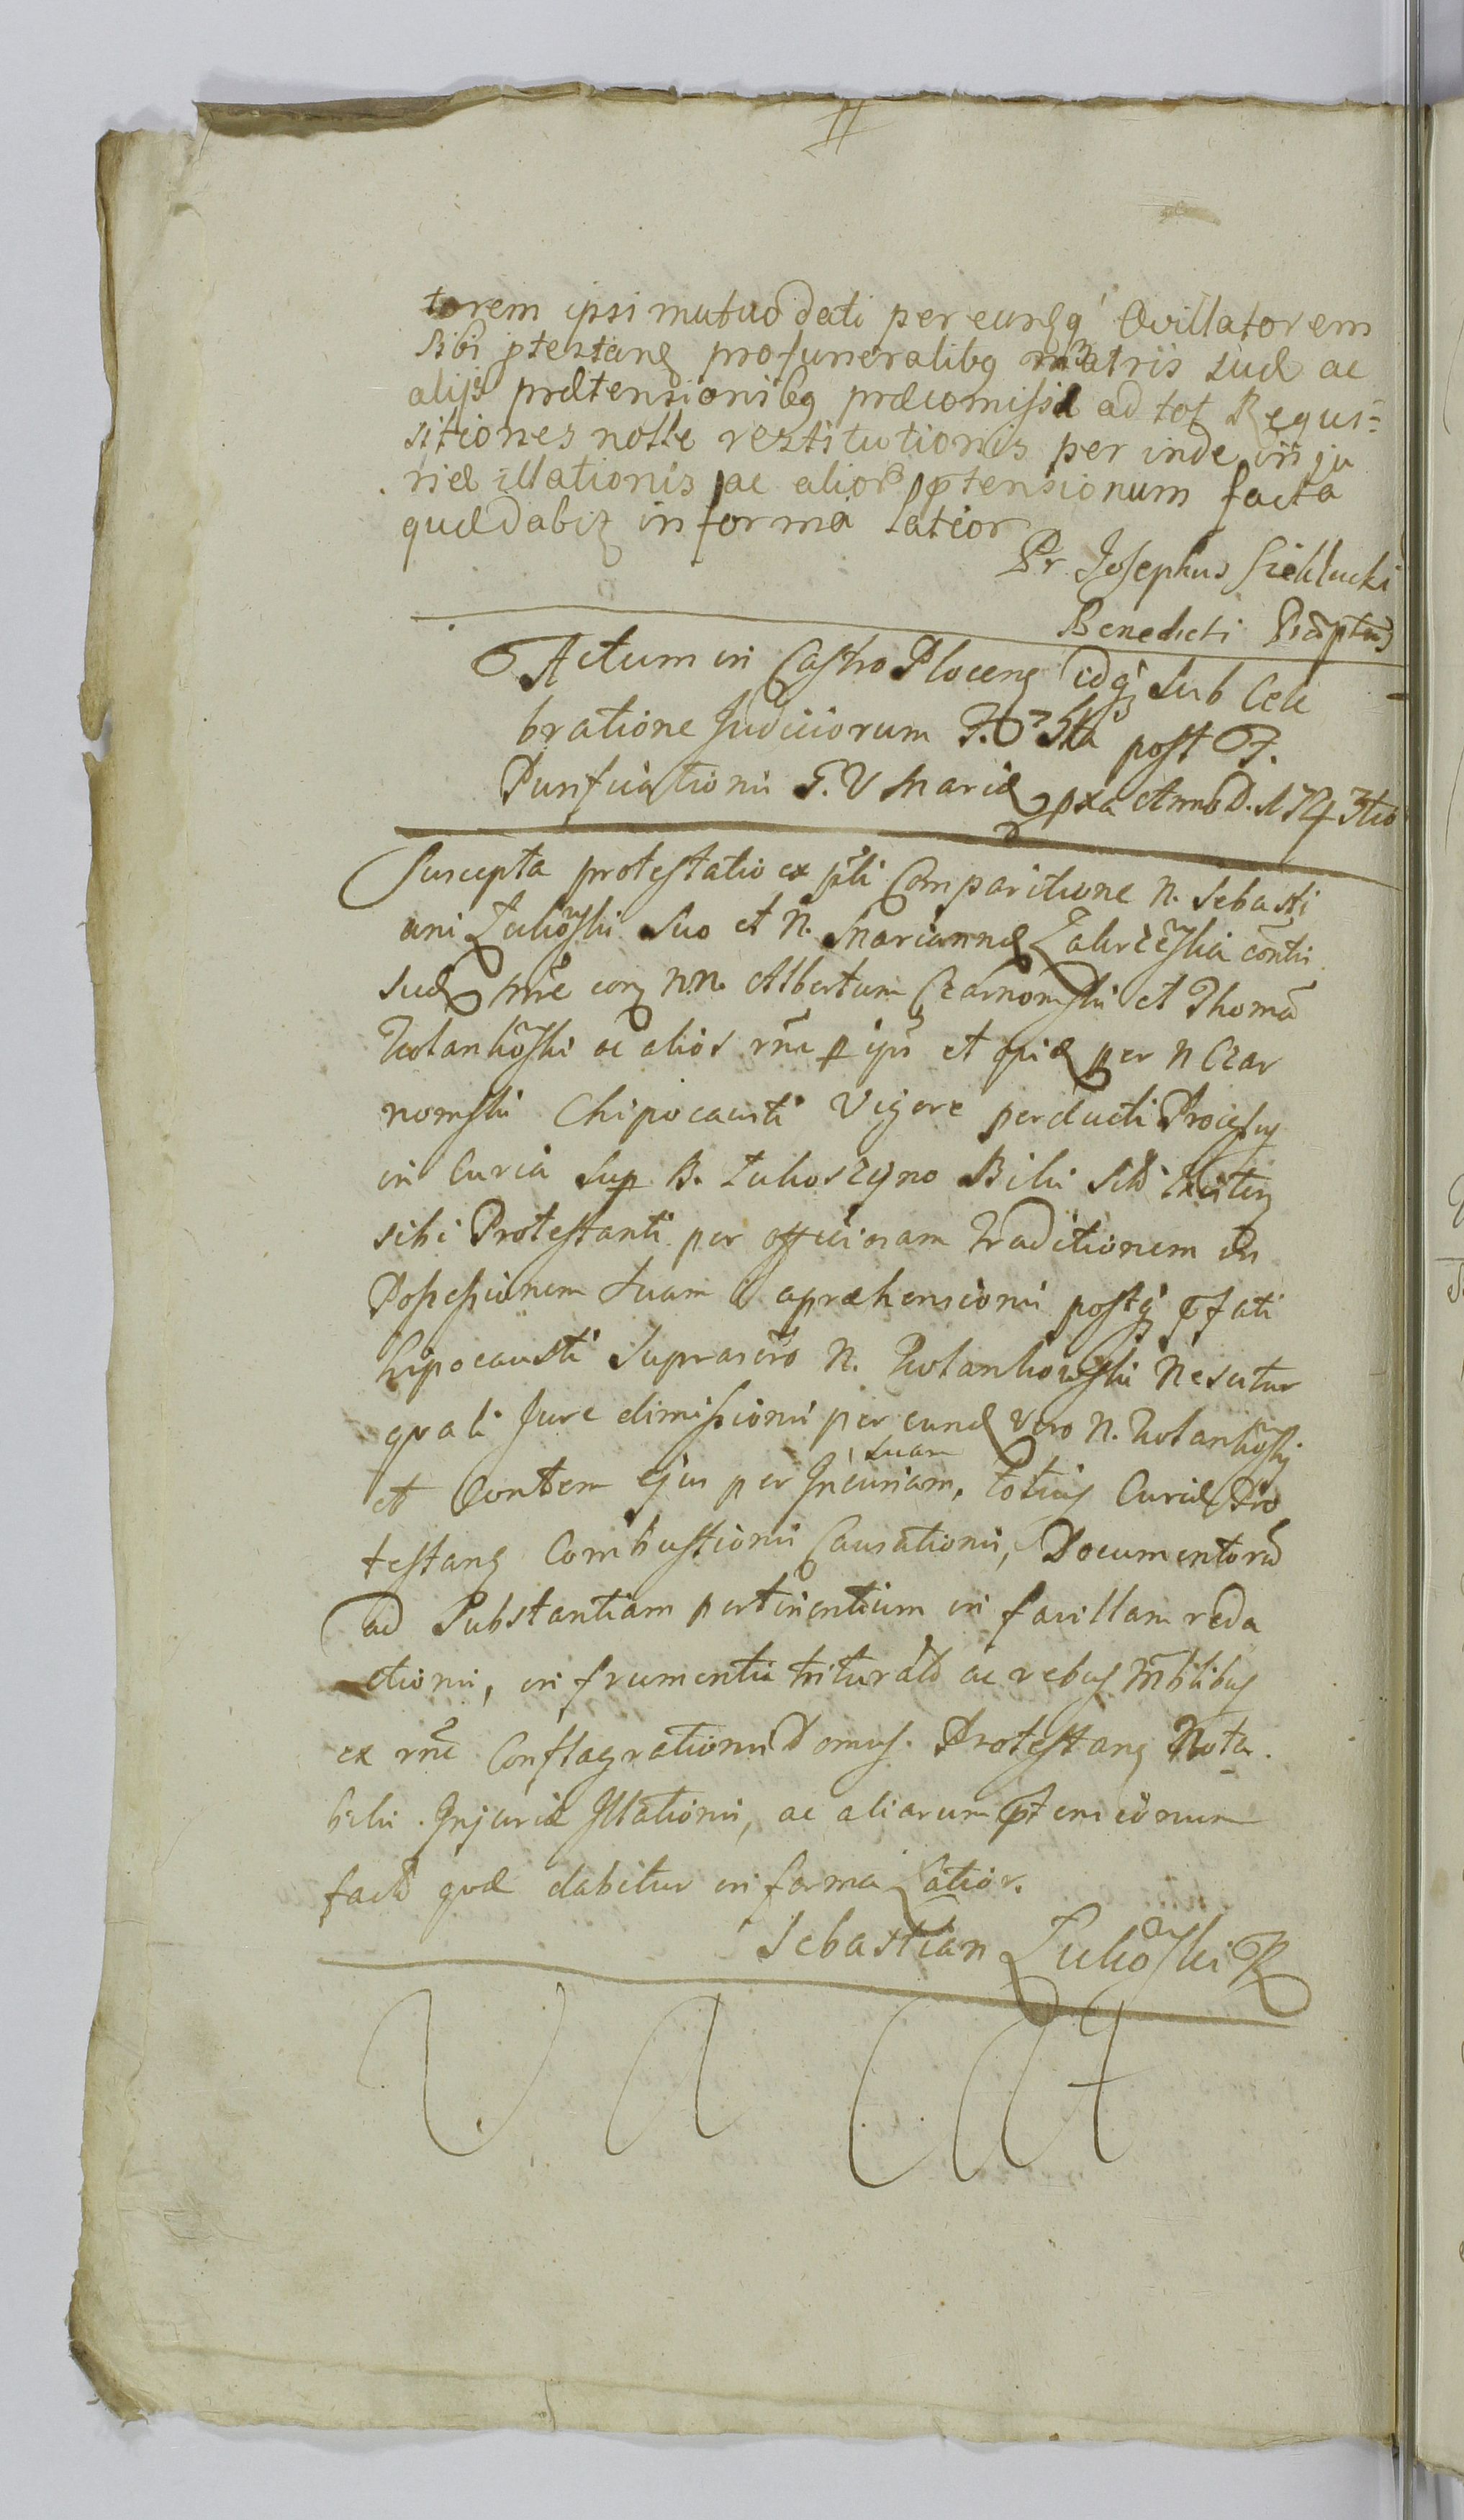 torem ipsi mutuo dati per eundq Ovillatorem
sibi ptestane pro funeralibq matris suæ ac
alijs prætensionibq præcomissa ad tot Requi=
sitiones nolle restitutionis per inde inju
riæ illationis ac alior ptensionum facta
quæ dabit in forma latior
Pr Josephus Sieklucki
Benedicti
Actum in Castro Plocen idq sub Cele
bratione Judiciorum F. 5ta post F.
Purificationis B. V Mariæ pxa Anno D. 1743tio
Suscepta protestatio ex pti Comparitione N. Sebasti
ani Zukoski suo et N. Mariannæ contis
suæ nne N.N. Albertum Czarnomski et Thoma
ac alios rne p ips et per N Czar
nomski Chipocausti Vigore perducti Procesus
in Curia sup B. Zukoszyno
sibi Protestanti per officiosam Traditionem in
Possessionem suam apræhensionis postq pfati
hipocausti suprascro N. nescitur
quali Jure dimissionis per eund vero N.
et Contem ejus per Incuriam, suam totius Curiæ Pro
testans Combustionis Causationis, Documentoru
ad Substantiam pertinentium in favillam reda
ctionis, in frumentis triturato ac rebus mblibus
ex rne Conflagrationis Domus Protestans Nota
bilis Injuriæ Illationis, ac aliarum ptensionum
facto quæ dabitur in forma Latior.
Sebastian Zukoski
VACAT